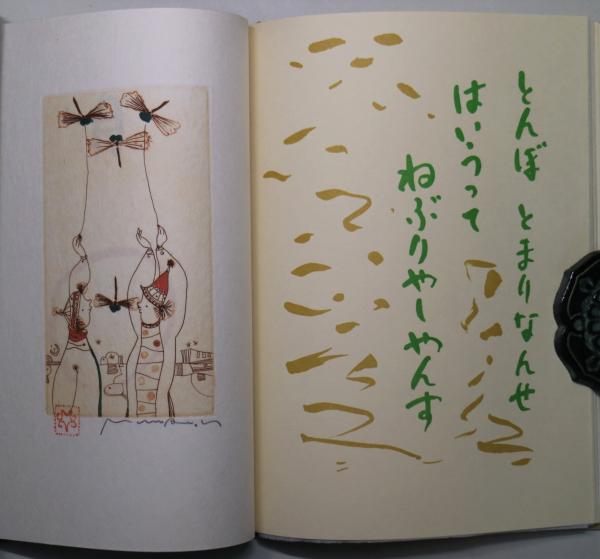 とんぼ とまりなんせ
はいうって
ねぶりやーやんす